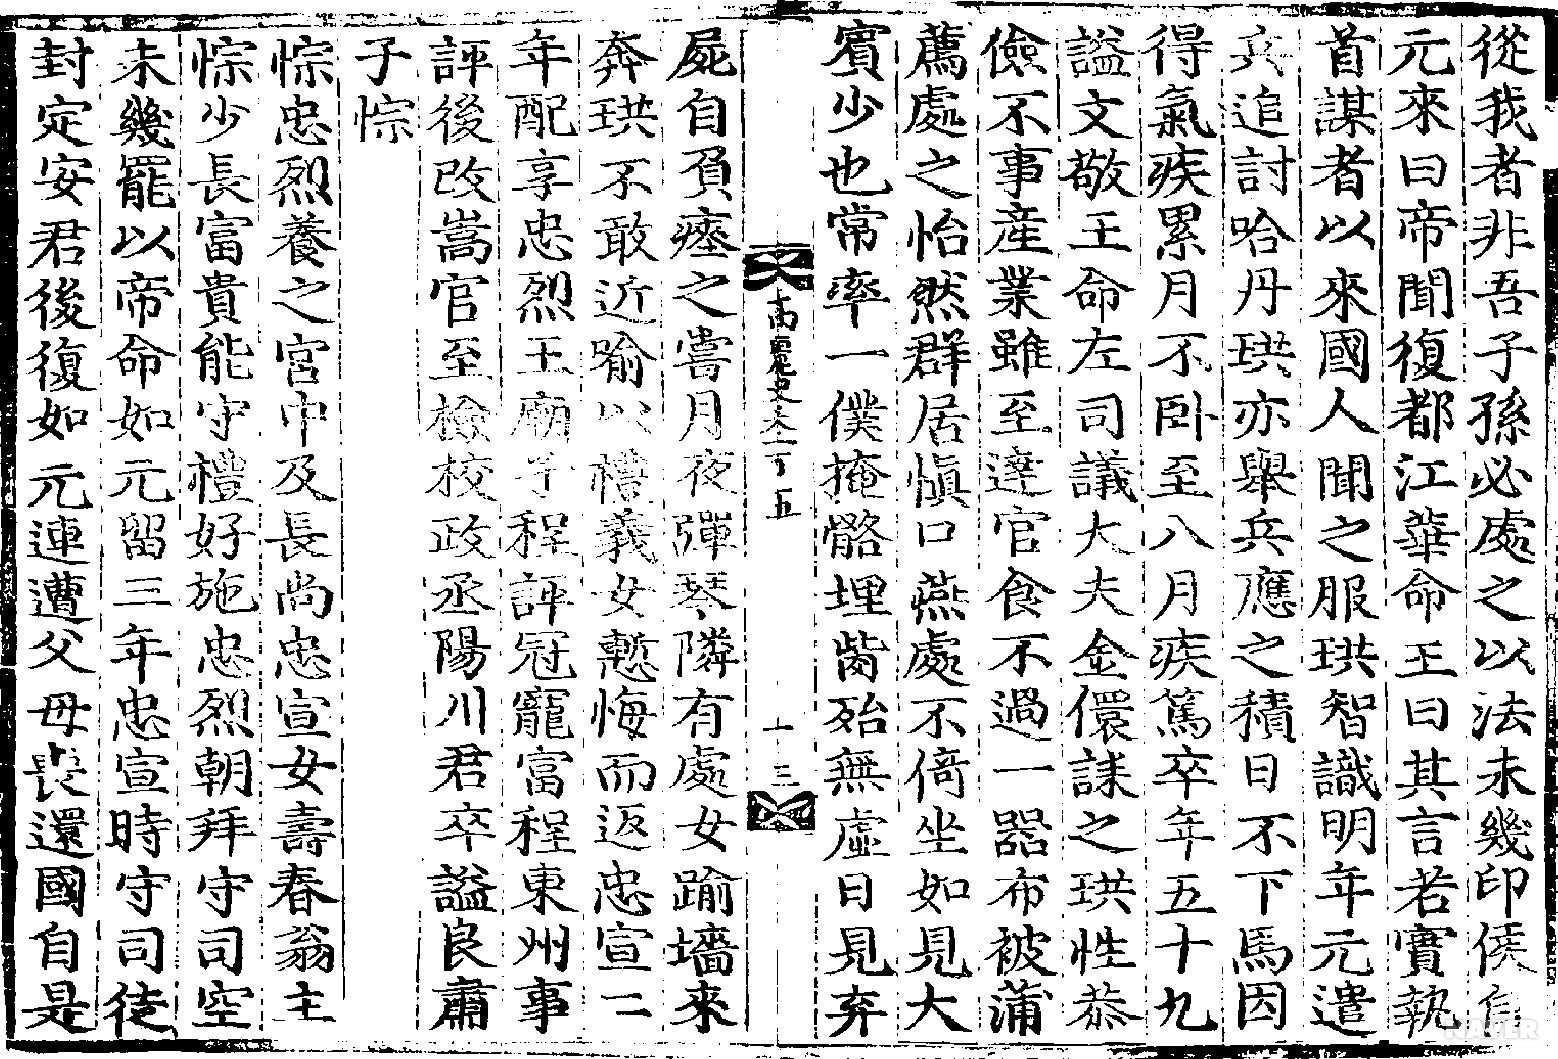 從我者非吾子孫必處之以法未幾印侯自
元來曰帝聞復都江華命王曰其言若實執
首謀者以來國人聞之服珙智識明年元遣
兵追討哈丹珙亦舉兵應之積日不下馬因
得氣疾累月不卧至八月疾篤卒年五十九
謚文敬王命左司議大夫金儇誄之珙性恭
儉不事産業雖至達官食不過一器布被蒲
薦處之怡然群居愼口燕處不倚坐如見大
賓少也常率一僕掩骼埋胔殆無虛日見弃
高麗史一百五
十三
屍自負瘞之嘗月夜彈琴隣有處女踰墻來
奔珙不敢近喩以禮義女慙悔而返忠宣二
年配享忠烈王廟子程評冠寵富程東州事
評後改嵩官至檢校政丞陽川君卒謚良肅
子悰
悰忠烈養之宮中及長尚忠宣女壽春翁主
悰少長富貴能守禮好施忠烈朝拜守司空
未幾罷以帝命如元留三年忠宣時守司徒
封定安君後復如元連遭父母喪還國自是
NAVER